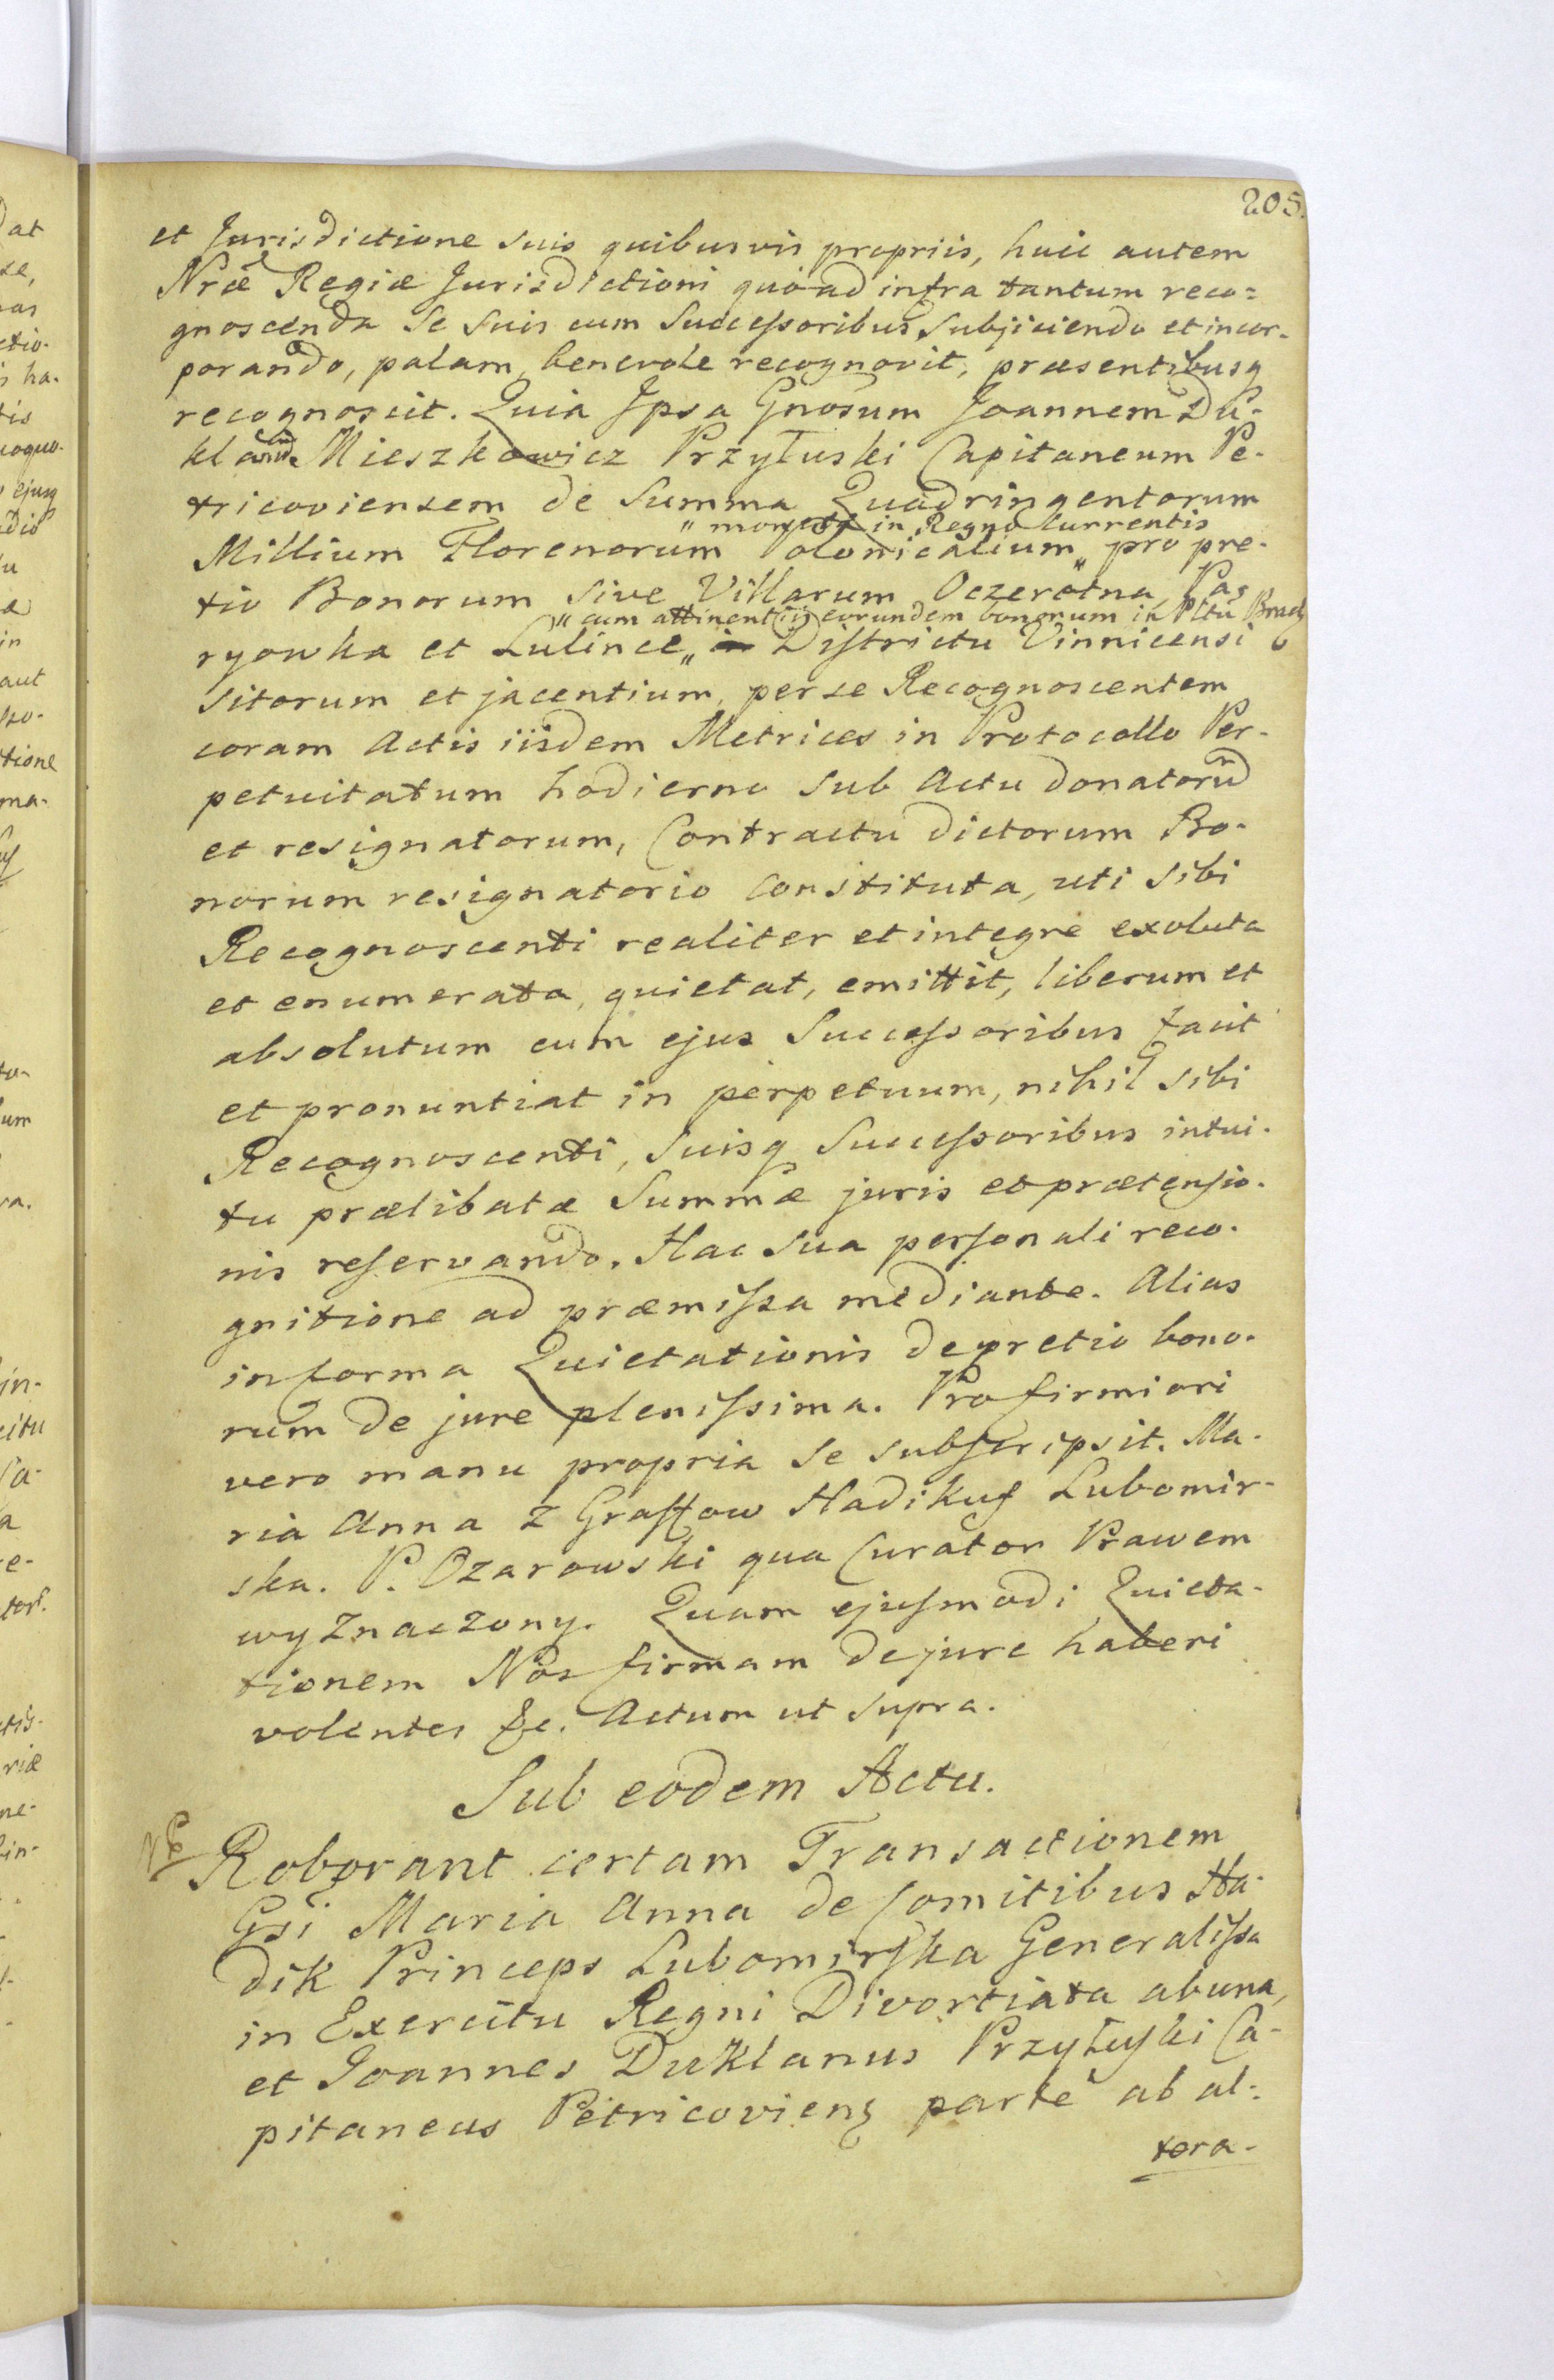 205.
et Jurisdictione suis quibusvis propriis, huic autem
Nræ Regiæ Jurisdictioni quo ad infra tantum reco=
gnoscenda se suis cum Successoribus subjiciendo et incor-
porando, palam, benevole recognovit, præsentibusq
recognoscit. Quia Ipsa Gnosum Joannem Du-
klanum Mieszkowicz Przyłuski Capitaneum Pe-
tricoviensem de Summa Quadringentorum
" monetæ in Regno Currentis
Millium Florenorum Polonicalium " pro pre-
tio Bonorum sive Villarum Oczeretna, Pas
" cum attinentiis eorundem bonorum in Pltu Bracł
ryowka et Lulince " in Districtu Vinnicensi
sitorum et jacentium, per se Recognoscentem
coram Actis iisdem Metrices in Protocollo Per-
petuitatum hodierno sub Actu donatorũ
et resignatorum, Contractu dictorum Bo-
norum resignatorio Constituta, uti sibi
Recognoscenti realiter et integre exoluta
et enumerata, quietat, emittit, liberum et
absolutum cum ejus Successoribus facit
et pronuntiat in perpetuum, nihil sibi
Recognoscenti, Suisq Successoribus intui-
tu prælibatæ Summæ juris et prætensio-
nis reservando. Hac sua personali reco-
gnitione ad præmissa mediante. Alias
in forma Quietationis de pretio bono-
rum de jure plenissima. Pro firmiori
vero manu propria se subscripsit. Ma-
ria Anna z Graffow Hadikuf Lubomir-
ska. P. Ozarowski qua Curator Prawem
wyznaczony. Quam ejusmodi Quieta-
tionem Nos firmam de jure haberi
volentes &c. Actum ut supra.
Sub eodem Actu.
Roborant certam Transactionem
Gsi Maria Anna de Comitibus Ha-
dik Princeps Lubomirska Generalissa
in Exercitu Regni Divortiata ab una,
et Joannes Duklanus Przyłuski Ca-
pitaneus Petricoviens parte ab al-
tera-